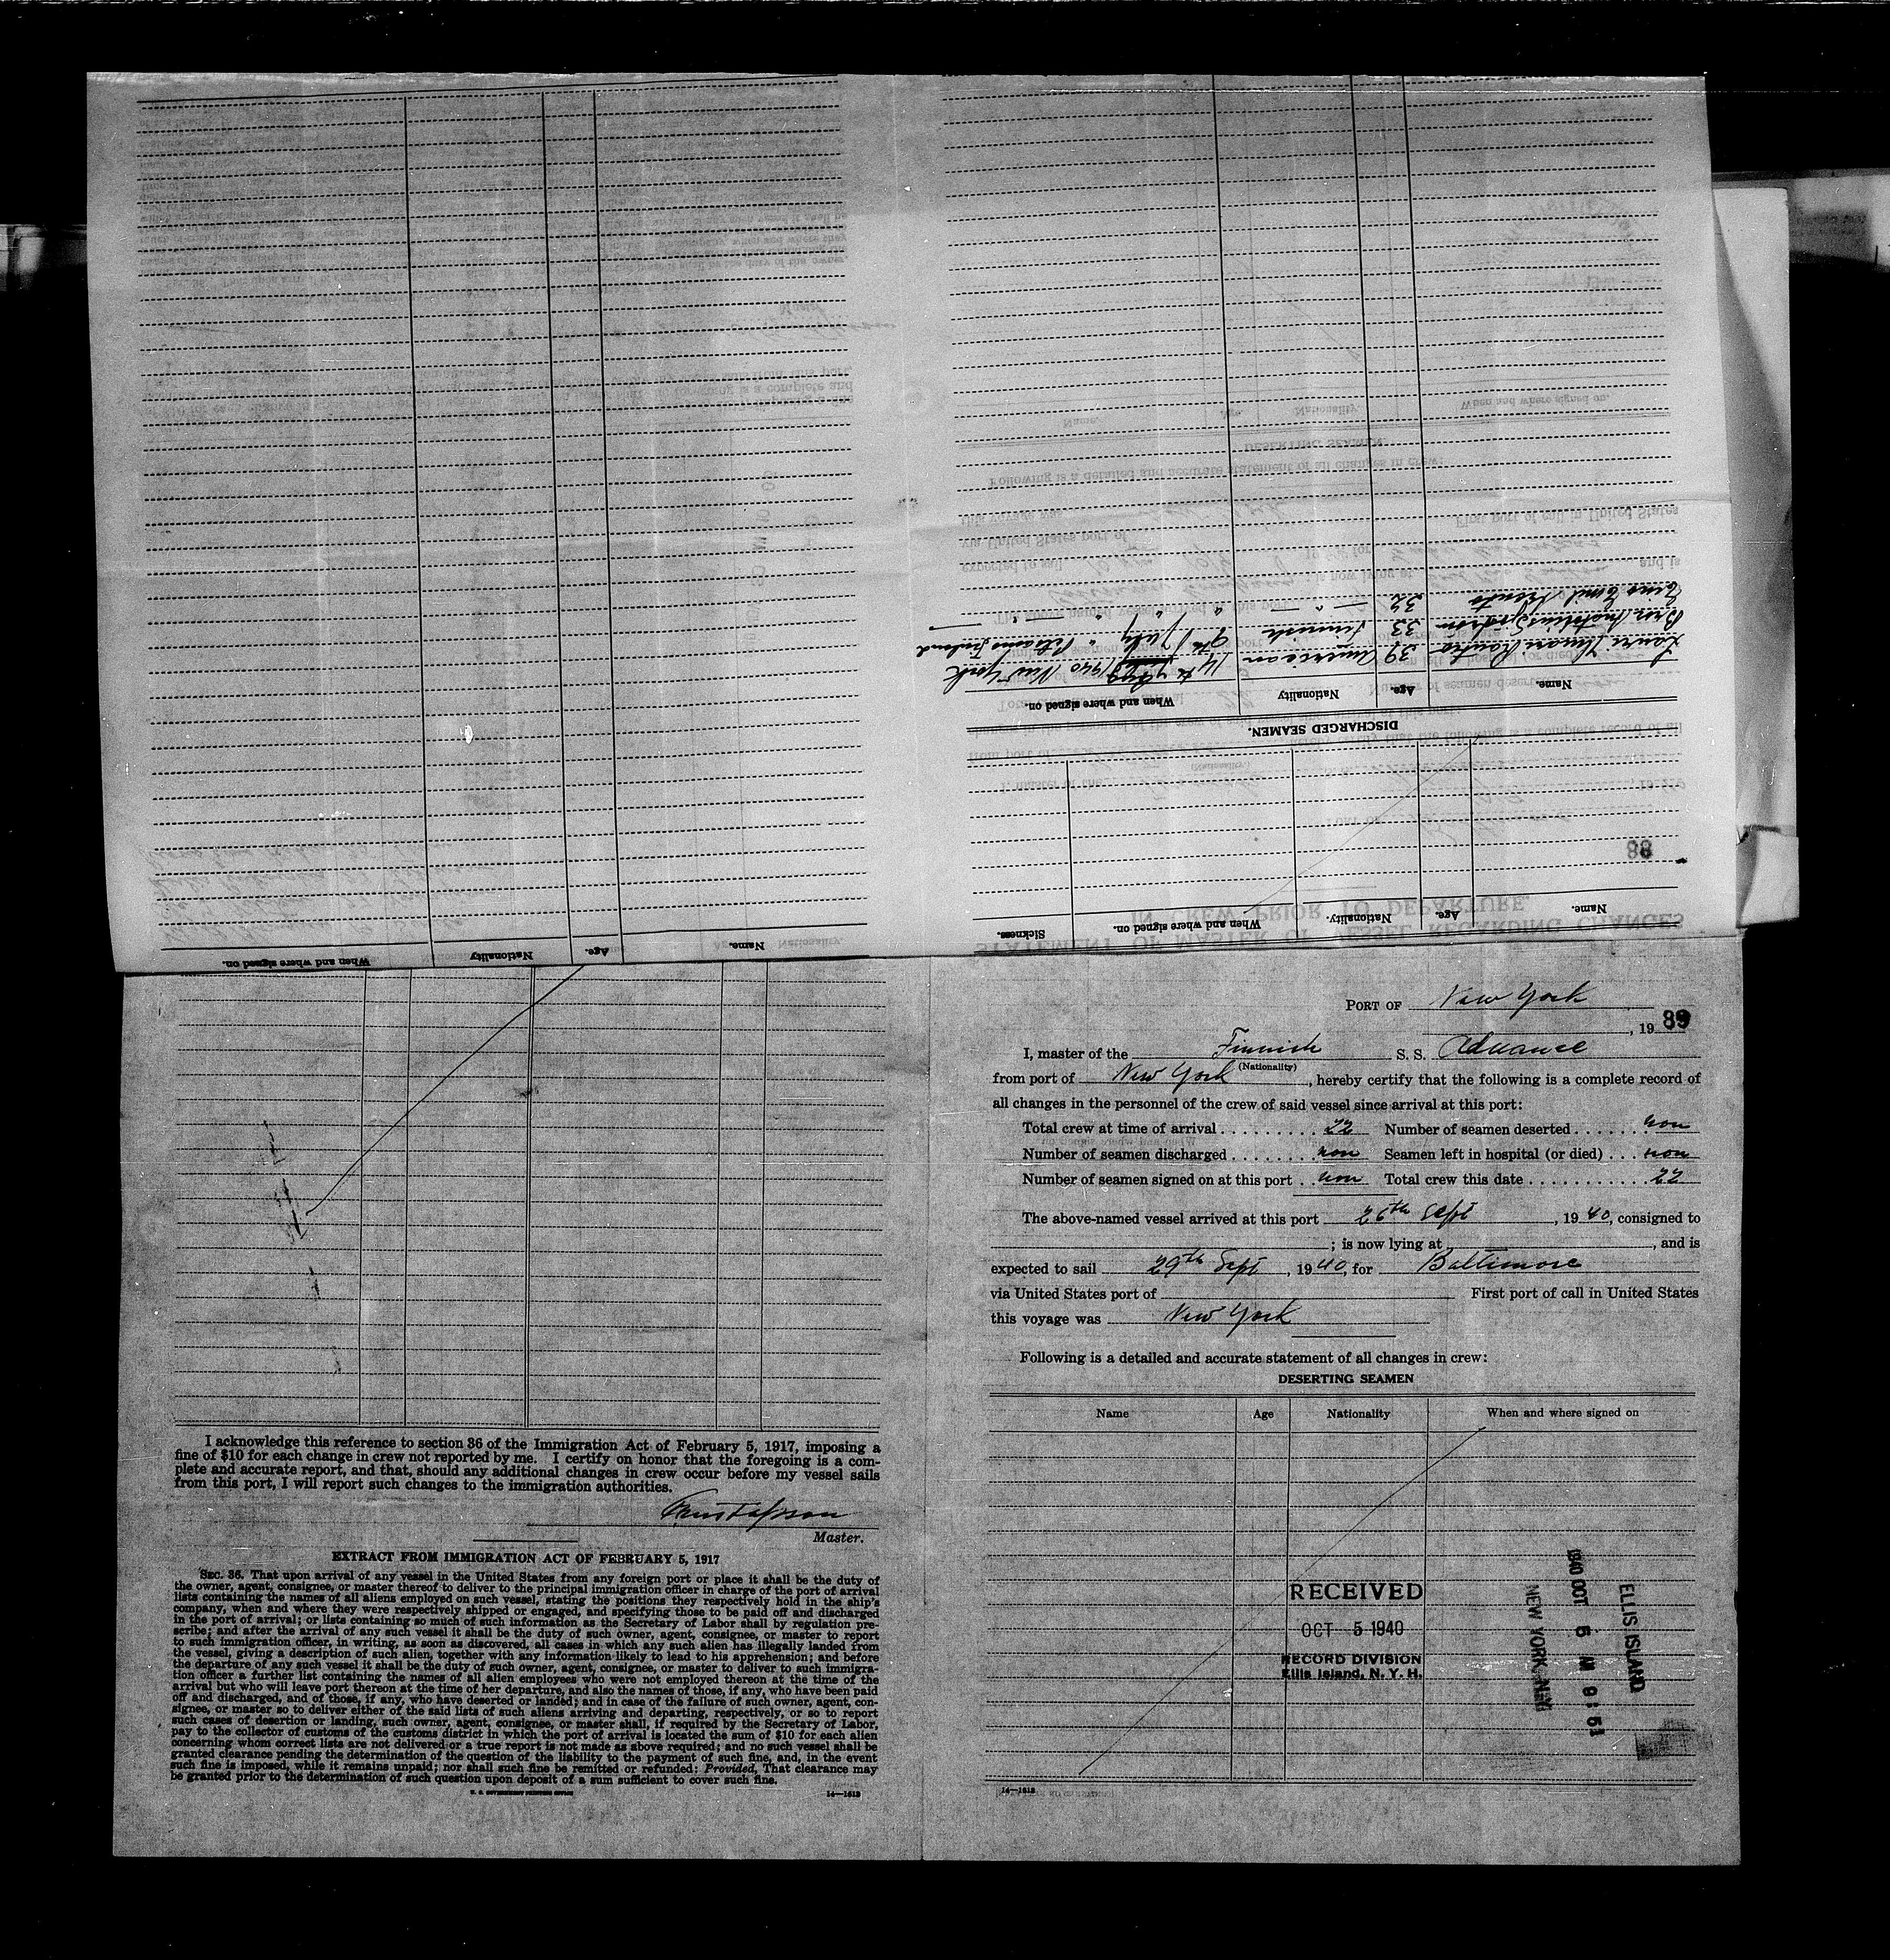 Sickness.
When and where signed on.
Nationality.
Age.
Name.
88
DISCHARGED SEAMEN.
Name.
Age.
Nationality
When and where signed on.
39 American 14th 1940 New York
33 Finnish 9th July Petsamo Finland
32 " "
Name.
Age.
Nationality
When and where signed on.
PORT OF New York
, 19 89
I, master of the Finnish S. S. Advance
(Nationality)
from port of New York , hereby certify that the following is a complete record of
all changes in the personnel of the crew of said vessel since arrival at this port:
Total crew at time of arrival 22 Number of seamen deserted non
Number of seamen discharged non Seamen left in hospital (or died) non
Number of seamen signed on at this port non Total crew this date 22
The above-named vessel arrived at this port 26th Sept , 19 40, consigned to
; is now lying at , and is
expected to sail 29th Sept , 19 40, for Baltimore
via United States port of First port of call in United States
this voyage was New York
Following is a detailed and accurate statement of all changes in crew:
DESERTING SEAMEN
Name Age Nationality When and where signed on
RECEIVED
OCT 5 1940
RECORD DIVISION
Ellis Island, N. Y. H.
ELLIS ISLAND
1940 OCT 5 AM 9:51
NEW YORK, N.Y.
14—1613
I acknowledge this reference to section 36 of the Immigration Act of February 5, 1917, imposing a
fine of $10 for each change in crew not reported by me. I certify on honor that the foregoing is a com-
plete and accurate report, and that, should any additional changes in crew occur before my vessel sails
from this port, I will report such changes to the immigration authorities.
Gustafsson
Master.
EXTRACT FROM IMMIGRATION ACT OF FEBRUARY 5, 1917
SEC. 36. That upon arrival of any vessel in the United States from any foreign port or place it shall be the duty of
the owner, agent, consignee, or master thereof to deliver to the principal immigration officer in charge of the port of arrival
lists containing the names of all aliens employed on such vessel, stating the positions they respectively hold in the ship's
company, when and where they were respectively shipped or engaged, and specifying those to be paid off and discharged
in the port of arrival; or lists containing so much of such information as the Secretary of Labor shall by regulation pre-
scribe; and after the arrival of any such vessel it shall be the duty of such owner, agent, consignee, or master to report
to such immigration officer, in writing, as soon as discovered, all cases in which any such alien has illegally landed from
the vessel, giving a description of such alien, together with any information likely to lead to his apprehension; and before
the departure of any such vessel it shall be the duty of such owner, agent, consignee, or master to deliver to such immigra-
tion officer a further list containing the names of all alien employees who were not employed thereon at the time of the
arrival but who will leave port thereon at the time of her departure, and also the names of those, if any, who have been paid
off and discharged, and of those, if any, who have deserted or landed; and in case of the failure of such owner, agent, con-
signee, or master so to deliver either of the said lists of such aliens arriving and departing, respectively, or so to report
such cases of desertion or landing, such owner, agent, consignee, or master shall, if required by the Secretary of Labor,
pay to the collector of customs of the customs district in which the port of arrival is located the sum of $10 for each alien
concerning whom correct lists are not delivered or a true report is not made as above required; and no such vessel shall be
granted clearance pending the determination of the question of the liability to the payment of such fine, and, in the event
such fine is imposed, while it remains unpaid; nor shall such fine be remitted or refunded: Provided, That clearance may
be granted prior to the determination of such question upon deposit of a sum sufficient to cover such fine.
U. S. GOVERNMENT PRINTING OFFICE 14—1613